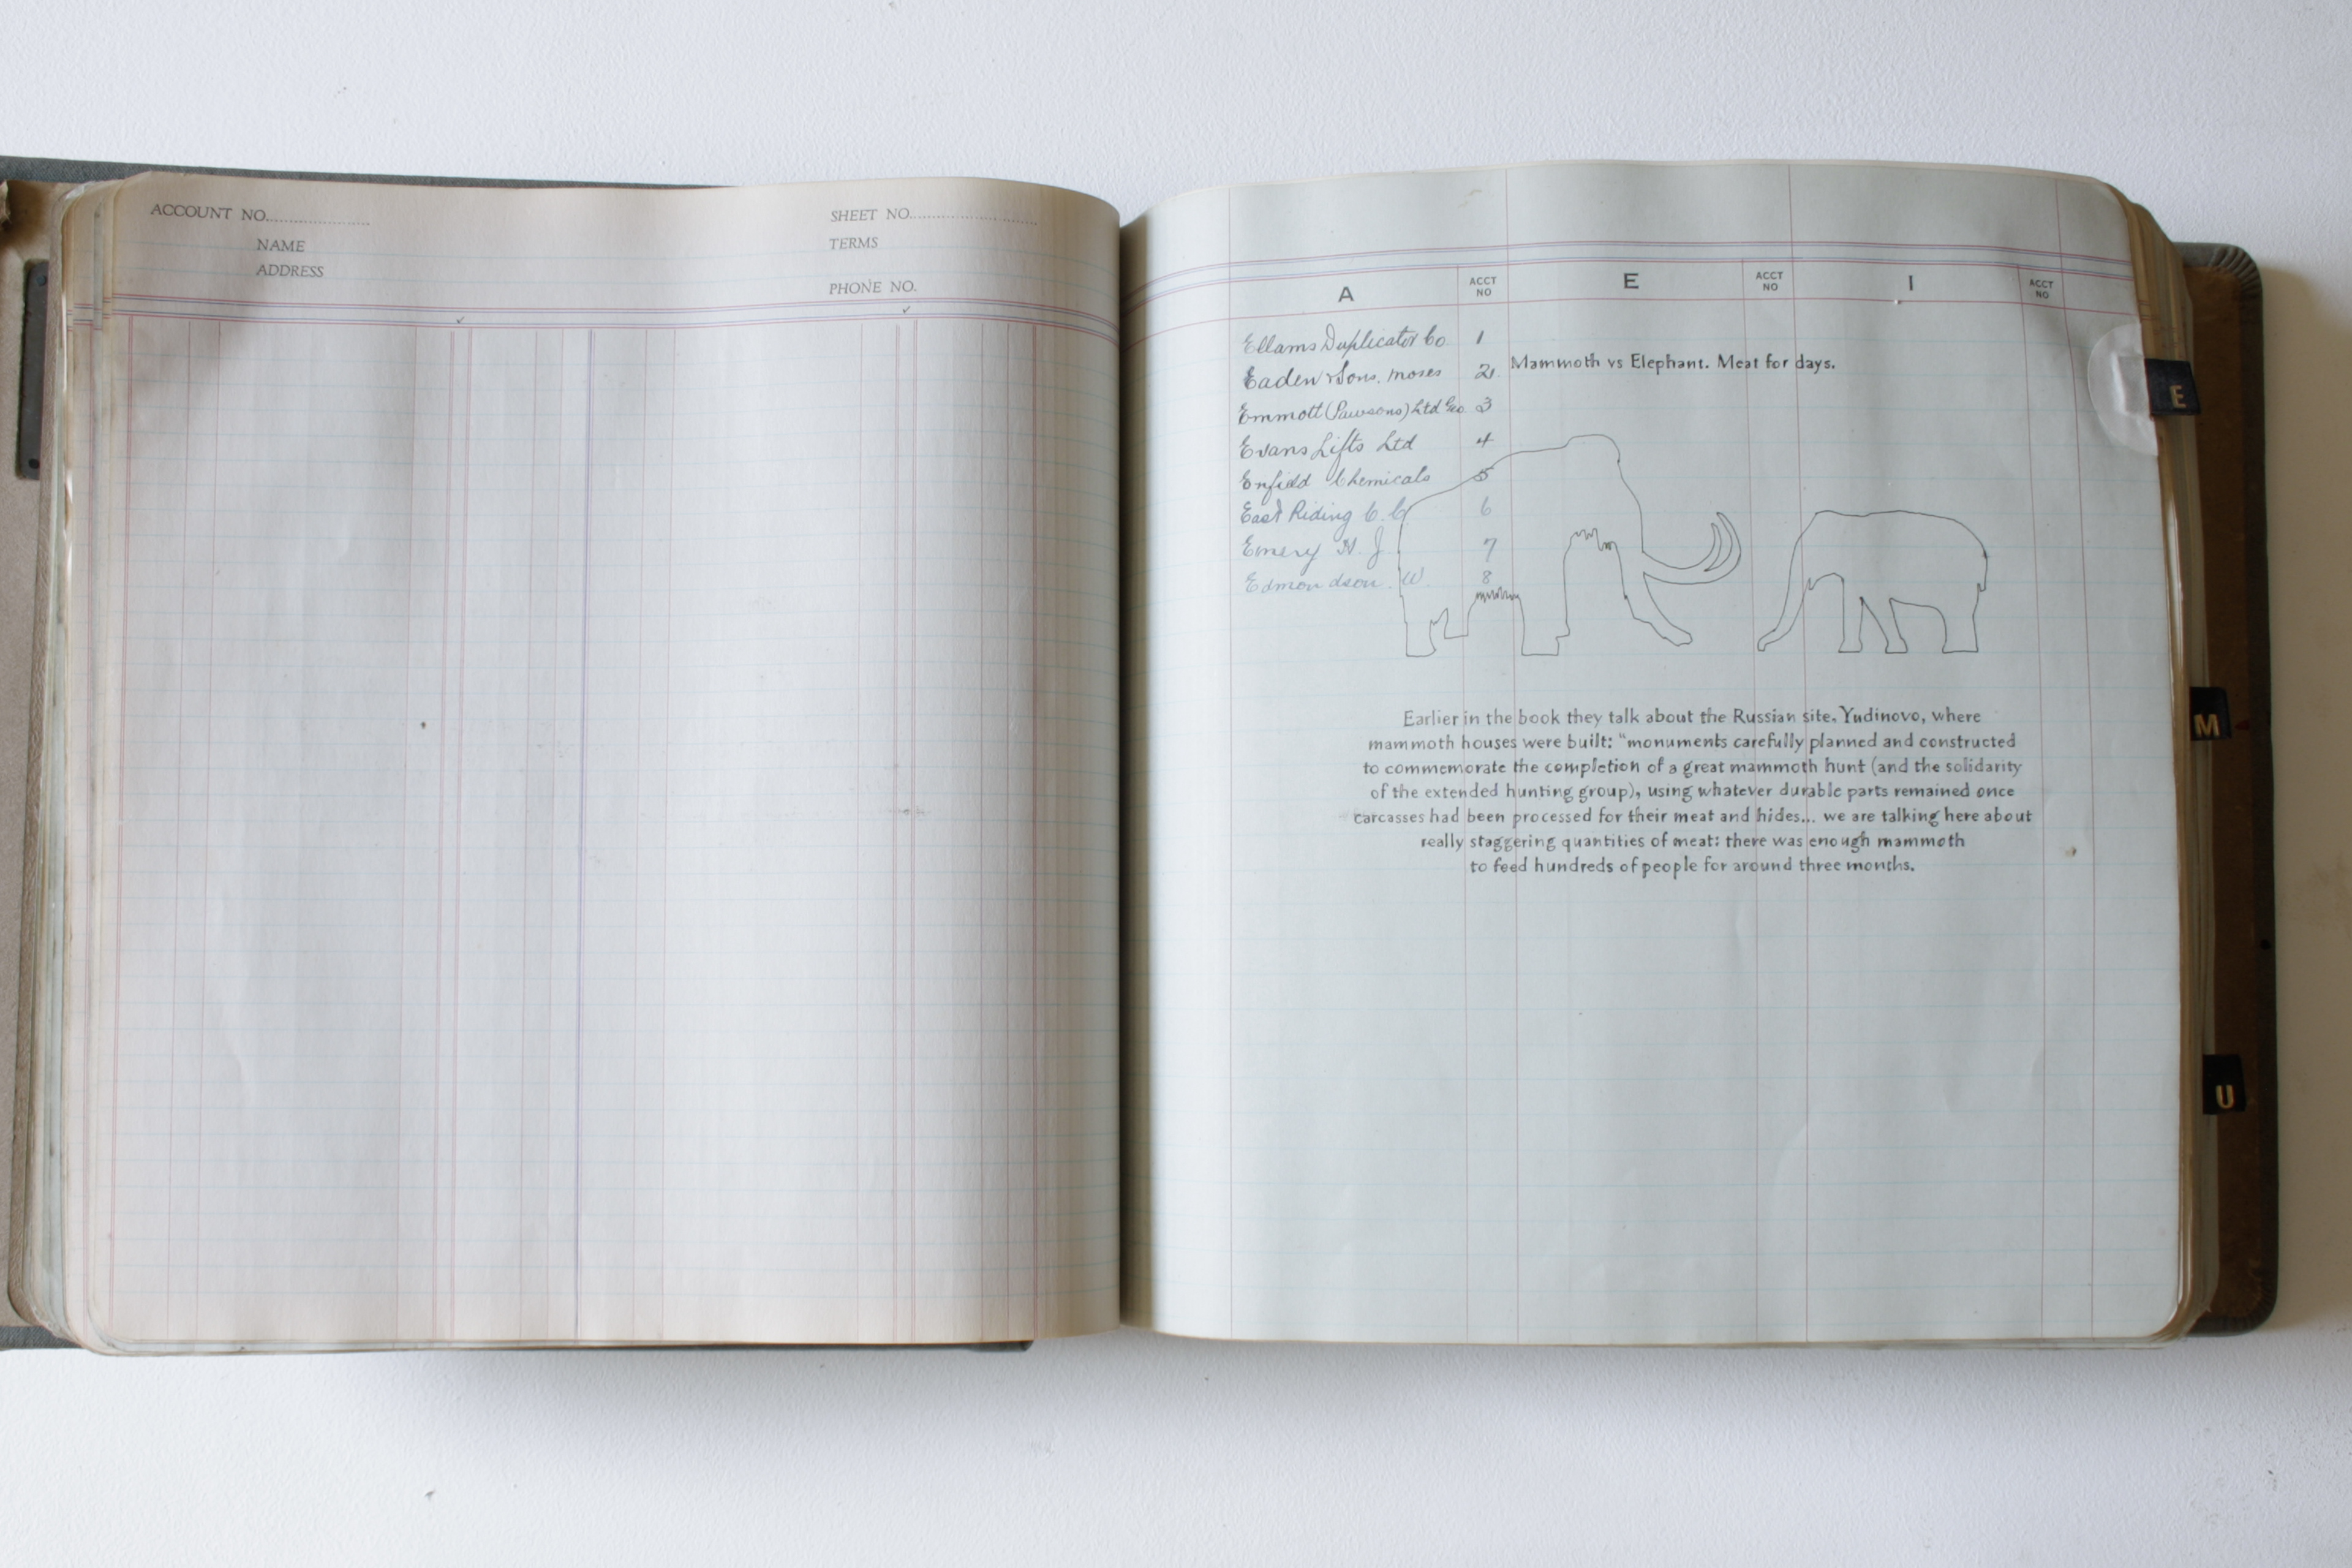 ACCOUNT NO.
SHEET NO.
NAME
TERMS
ADDRESS
PHONE NO.
A ACCT NO E ACCT NO I ACCT NO
Ellams Duplicator Co 1
Eaden & Sons. Moses 2
Emmott (Pawsons) Ltd Geo 3
Evans Lifts Ltd 4
Enfield Chemicals 5
East Riding C.C. 6
Emery H. J. 7
Edmondson. W. 8
Mammoth vs Elephant. Meat for days.
Earlier in the book they talk about the Russian site, Yudinovo, where
mammoth houses were built: "monuments carefully planned and constructed
to commemorate the completion of a great mammoth hunt (and the solidarity
of the extended hunting group), using whatever durable parts remained once
carcasses had been processed for their meat and hides... we are talking here about
really staggering quantities of meat: there was enough mammoth
to feed hundreds of people for around three months.
E
M
U